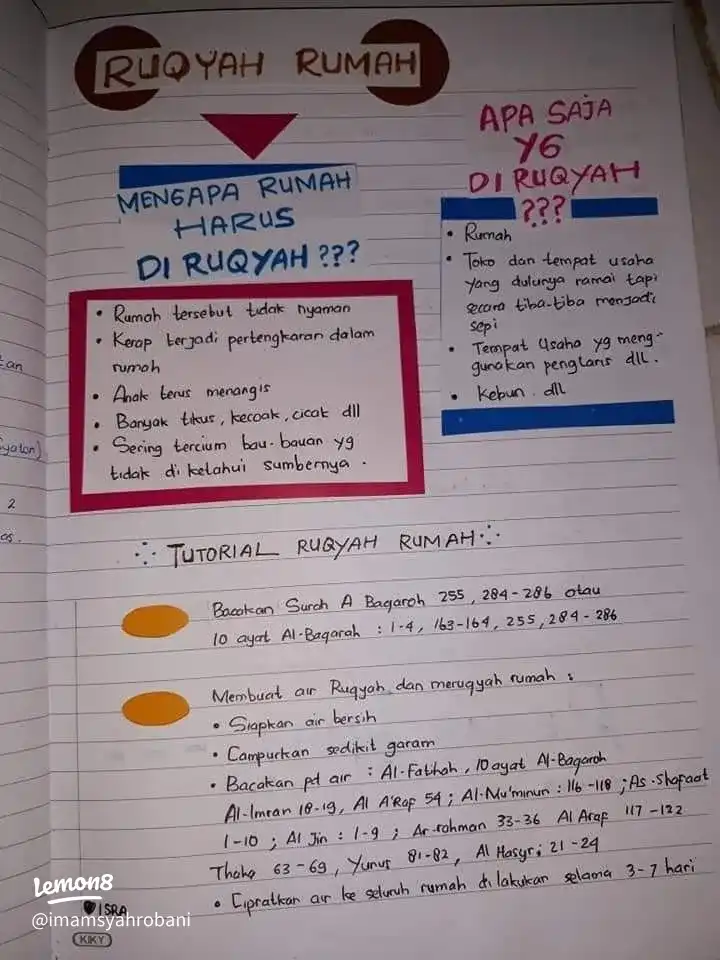 RUQYAH RUMAH
MENGAPA RUMAH
HARUS
DI RUQYAH ???
• Rumah tersebut tidak nyaman
• Kerap terjadi pertengkaran dalam
rumah
• Anak terus menangis
• Banyak tikus, kecoak, cicak dll
• Sering tercium bau-bauan yg
tidak di ketahui sumbernya.
APA SAJA
YG
DI RUQYAH
???
• Rumah
• Toko dan tempat usaha
yang dulunya ramai tapi
secara tiba-tiba menjadi
sepi
• Tempat Usaha yg meng-
gunakan penglaris dll.
• Kebun. dll
TUTORIAL RUQYAH RUMAH
Bacakan Surah A Baqaroh 255, 284-286 atau
10 ayat Al-Baqarah : 1-4, 163-164, 255, 284-286
Membuat air Ruqyah dan meruqyah rumah :
• Siapkan air bersih
• Campurkan sedikit garam
• Bacakan pd air : Al-Fatihah, 10 ayat Al-Baqaroh
Al-Imran 18-19, Al A'Rof 54 ; Al-Mu'minun : 116-118 ; As-Shafaat
1-10 ; Al Jin : 1-9 ; Ar-rohman 33-36 Al Araf 117-122
Thoha 63-69, Yunus 81-82, Al Hasyr ; 21-24
• Cipratkan air ke seluruh rumah di lakukan selama 3-7 hari
yaton)
2
os.
lemon8
ISRA
@imamsyahrobani
KIKY